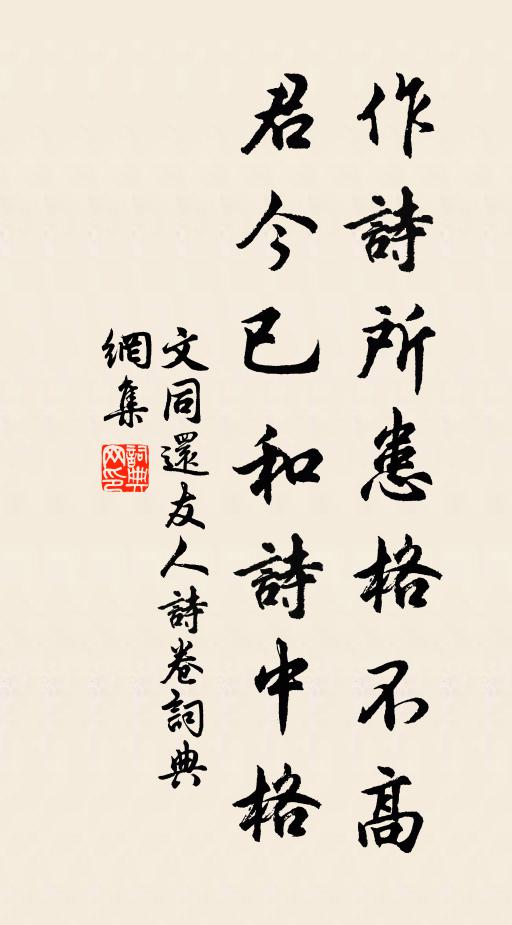 作詩所患格不高
君今已和詩中格
文同還友人詩卷詞典
網集
詞典
网印